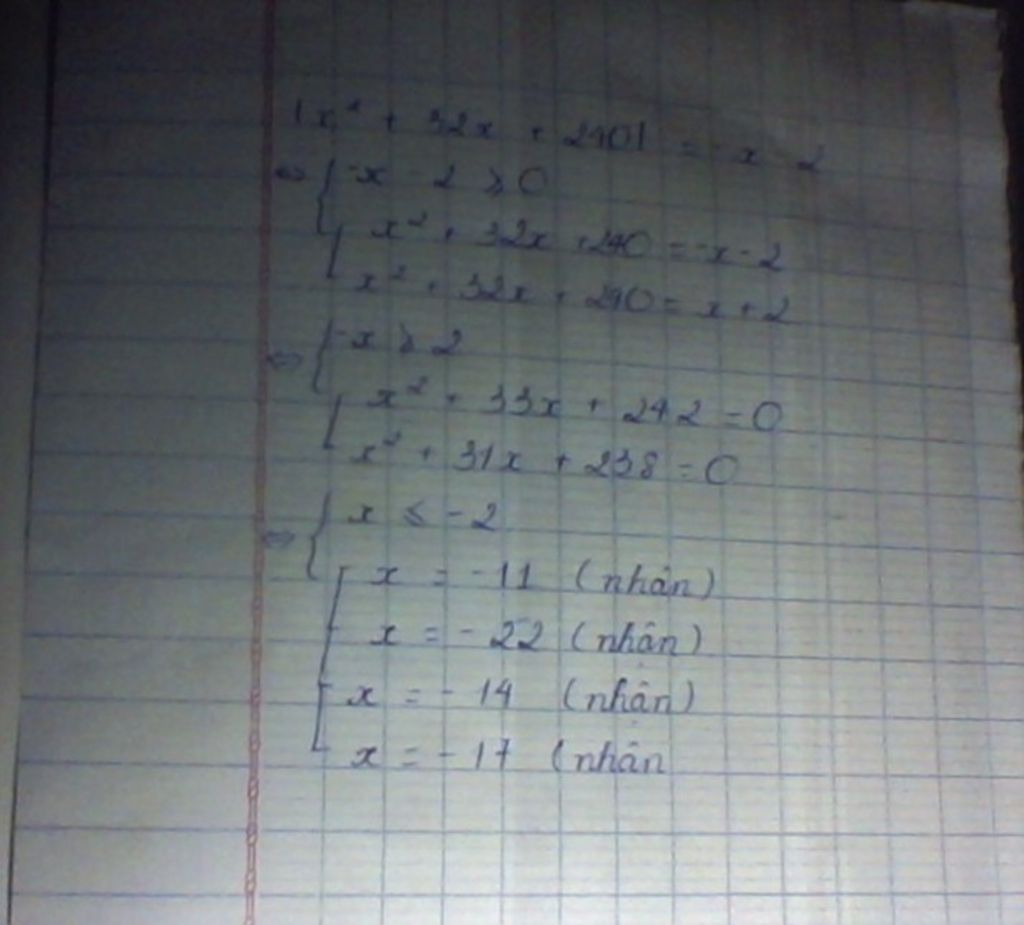 |x² + 32x + 240| = -x - 2
⇔ { -x - 2 ≥ 0
[ x² + 32x + 240 = -x - 2
x² + 32x + 240 = x + 2
⇔ { -x ≥ 2
[ x² + 33x + 242 = 0
x² + 31x + 238 = 0
⇔ { x ≤ -2
[ x = -11 (nhận)
x = -22 (nhận)
x = -14 (nhận)
x = -17 (nhận